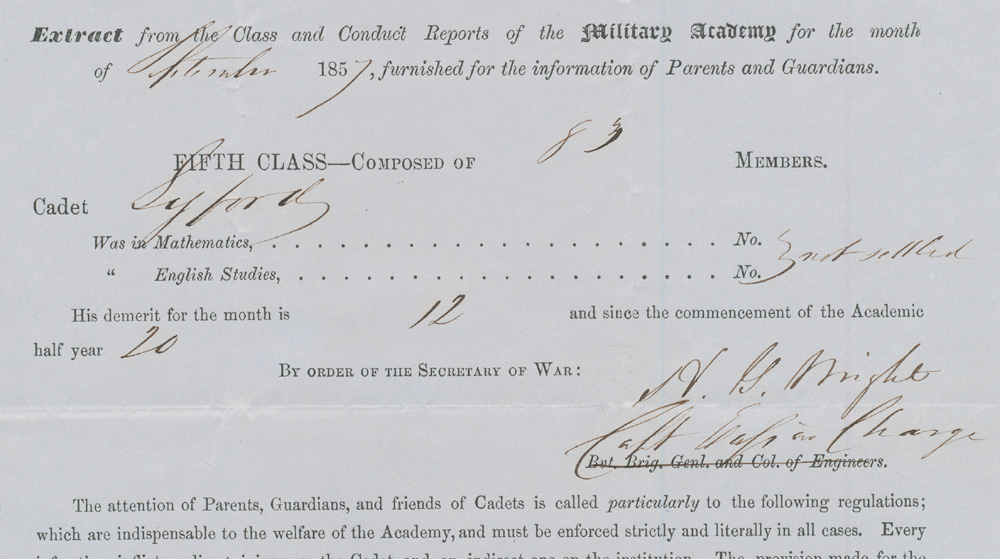 Extract from the Class and Conduct Reports of the Military Academy for the month
of September 1857, furnished for the information of Parents and Guardians.
83
FIFTH CLASS—COMPOSED OF MEMBERS.
Cadet Lyford
Was in Mathematics, . . . . . . . . . . . . . . . . . . . . . No.
" English Studies, . . . . . . . . . . . . . . . . . . . . No. } not settled
His demerit for the month is 12 and since the commencement of the Academic
half year 20
BY ORDER OF THE SECRETARY OF WAR:
H. G. Wright
Capt Engrs in Charge
Bvt. Brig. Genl. and Col. of Engineers.
The attention of Parents, Guardians, and friends of Cadets is called particularly to the following regulations;
which are indispensable to the welfare of the Academy, and must be enforced strictly and literally in all cases. Every